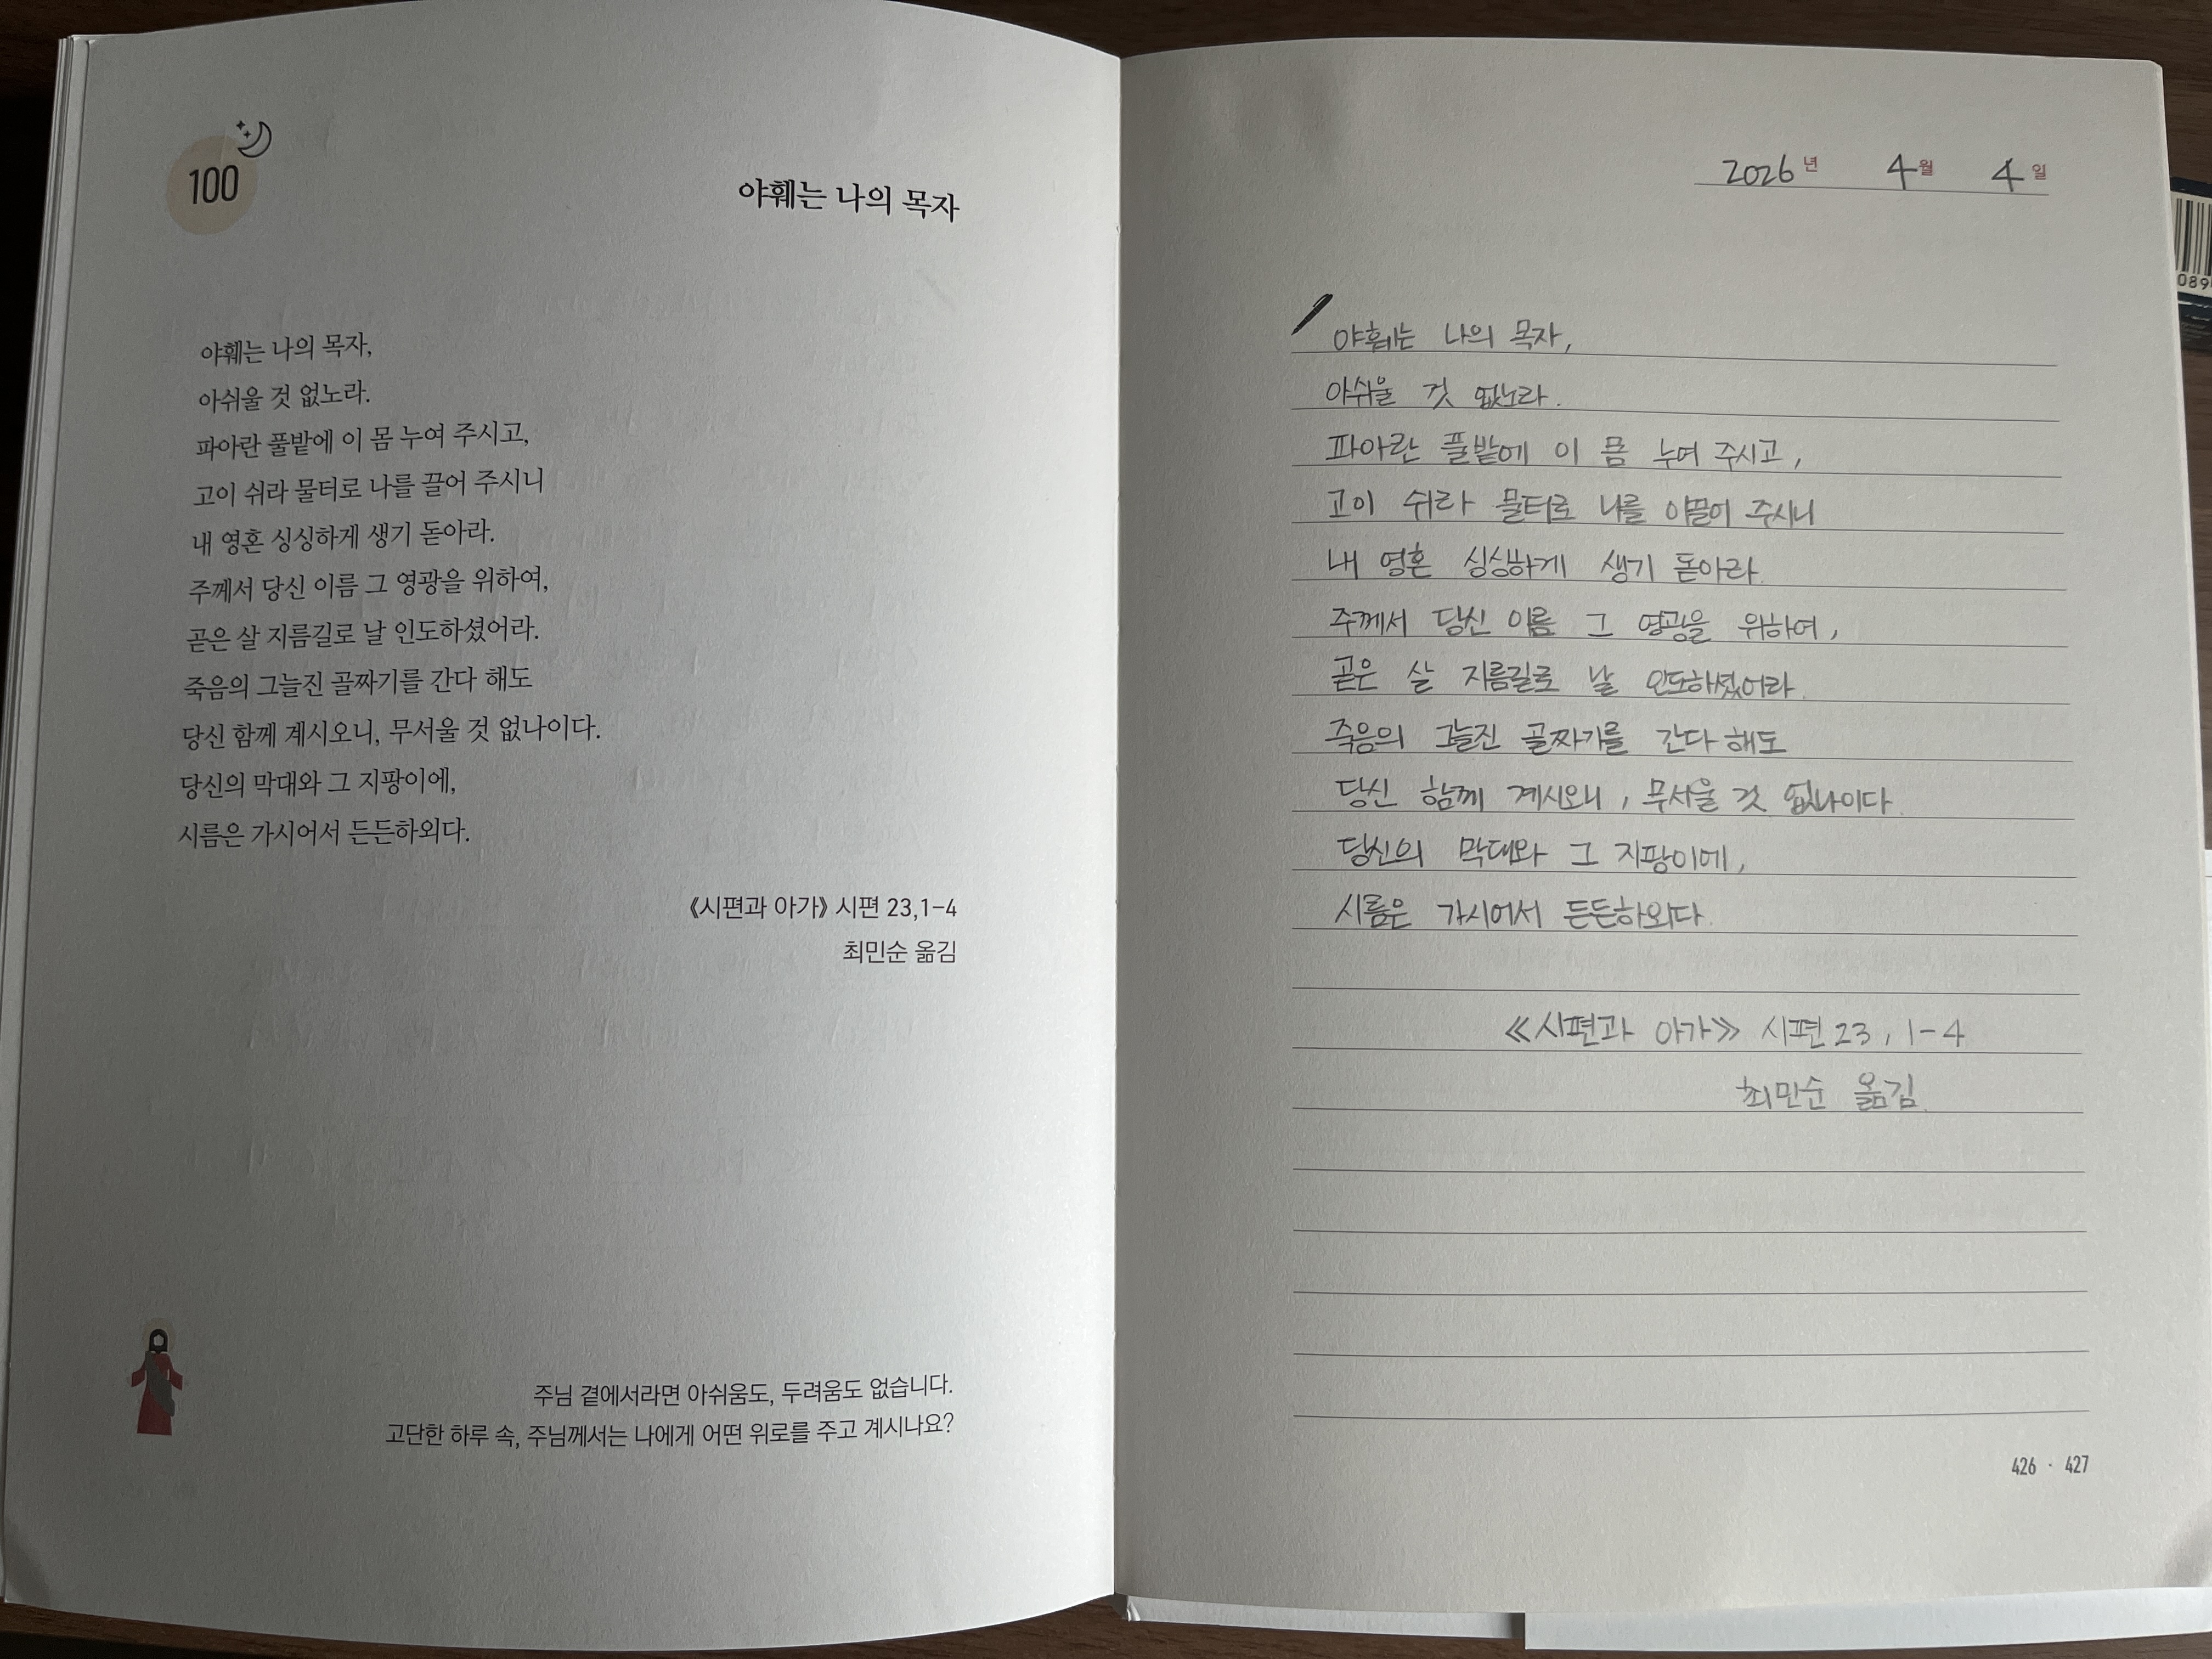 100
야훼는 나의 목자
야훼는 나의 목자,
아쉬울 것 없노라.
파아란 풀밭에 이 몸 누여 주시고,
고이 쉬라 물터로 나를 끌어 주시니
내 영혼 싱싱하게 생기 돋아라.
주께서 당신 이름 그 영광을 위하여,
곧은 살 지름길로 날 인도하셨어라.
죽음의 그늘진 골짜기를 간다 해도
당신 함께 계시오니, 무서울 것 없나이다.
당신의 막대와 그 지팡이에,
시름은 가시어서 든든하외다.
《시편과 아가》 시편 23,1-4
최민순 옮김
주님 곁에서라면 아쉬움도, 두려움도 없습니다.
고단한 하루 속, 주님께서는 나에게 어떤 위로를 주고 계시나요?
2026년 4월 4일
야훼는 나의 목자,
아쉬울 것 없노라.
파아란 풀밭에 이 몸 누여 주시고,
고이 쉬라 물터로 나를 이끌어 주시니
내 영혼 싱싱하게 생기 돋아라.
주께서 당신 이름 그 영광을 위하여,
곧은 살 지름길로 날 인도하셨어라.
죽음의 그늘진 골짜기를 간다 해도
당신 함께 계시오니, 무서울 것 없나이다.
당신의 막대와 그 지팡이에,
시름은 가시어서 든든하외다.
《시편과 아가》 시편 23, 1-4
최민순 옮김.
426 · 427